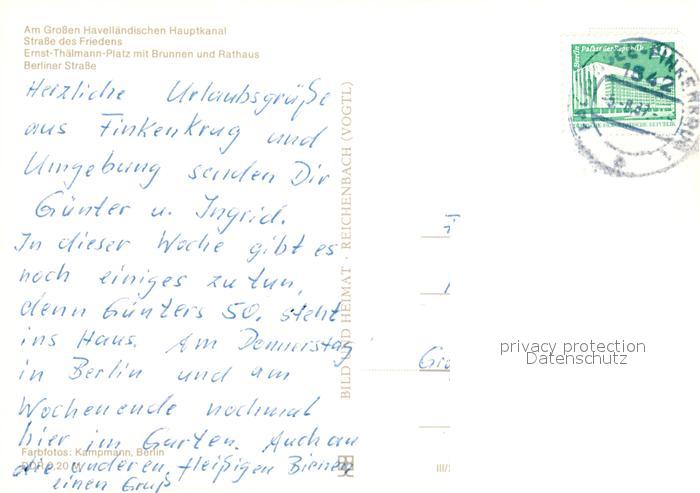 Am Großen Havelländischen Hauptkanal
Straße des Friedens
Ernst-Thälmann-Platz mit Brunnen und Rathaus
Berliner Straße
Herzliche Urlaubsgrüße
aus Finkenkrug und
Umgebung senden Dir
Günter u. Ingrid.
In dieser Woche gibt es
noch einiges zu tun,
denn Günters 50. steht
ins Haus. Am Donnerstag
in Berlin und am
Wochenende nochmal
hier im Garten. Auch an
die anderen fleißigen Bienen
einen Gruß
Farbfotos: Kampmann, Berlin
DDR 0,20 M
BILD UND HEIMAT · REICHENBACH (VOGTL)
III/
Berlin Palast der Republik
DEUTSCHE DEMOKRATISCHE REPUBLIK
1542
privacy protection
Datenschutz